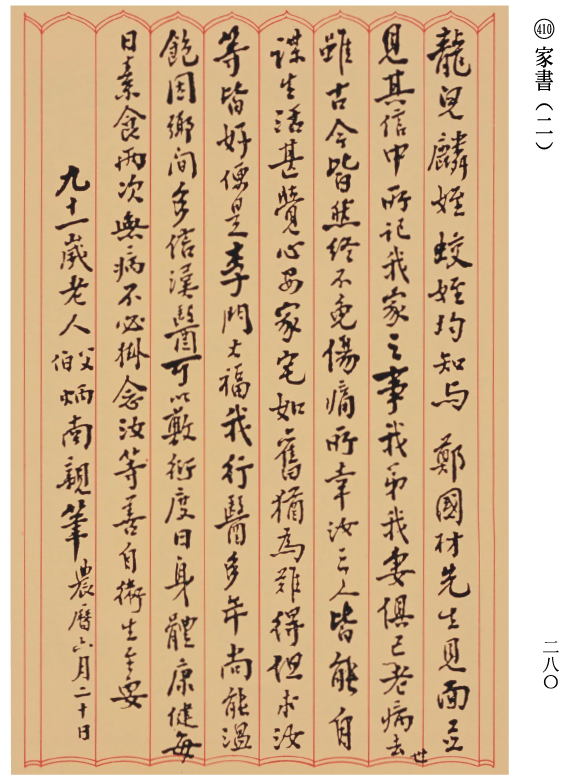 ㊿410 家書（二）
龍兒麟姪蛟姪均知與 鄭國材先生見面並
見其信中所記我家之事我弟我妻俱已老病去世
雖古今皆然終不免傷痛所幸汝三人皆能自
謀生活甚覺心安家宅如舊猶為難得但求汝
等皆好便是李門大福我行醫多年尚能溫
飽因鄉間多信漢醫可以敷衍度日身體康健每
日素食兩次無病不必掛念汝等善自衛生至要
九十一歲老人 父伯 炳南親筆 農曆六月二十日
二八〇